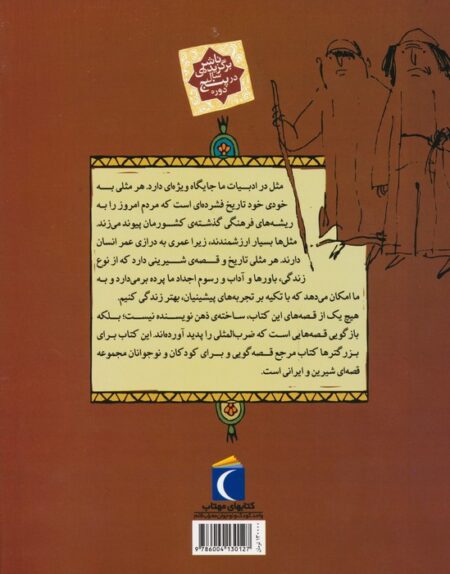 ناشر
برگزیده‌ی
سال
در پنج
دوره
مثل در ادبیات ما جایگاه ویژه‌ای دارد. هر مثلی به
خودی خود تاریخ فشرده‌ای است که مردم امروز را به
ریشه‌های فرهنگی گذشته‌ی کشورمان پیوند می‌زند
مثل‌ها بسیار ارزشمندند، زیرا عمری به درازی عمر انسان
دارند. هر مثلی تاریخ و قصه‌ی شیرینی دارد که از نوع
زندگی، باورها و آداب و رسوم اجداد ما پرده برمی‌دارد و به
ما امکان می‌دهد که با تکیه بر تجربه‌های پیشینیان، بهتر زندگی کنیم.
هیچ یک از قصه‌های این کتاب، ساخته‌ی ذهن نویسنده نیست؛ بلکه
بازگویی قصه‌هایی است که ضرب‌المثلی را پدید آورده‌اند. این کتاب برای
بزرگترها کتاب مرجع قصه‌گویی و برای کودکان و نوجوانان مجموعه
قصه‌ای شیرین و ایرانی است.
کتابهای مهتاب
واحد کودک و نوجوان محراب قلم
تومان
9 786004 130127